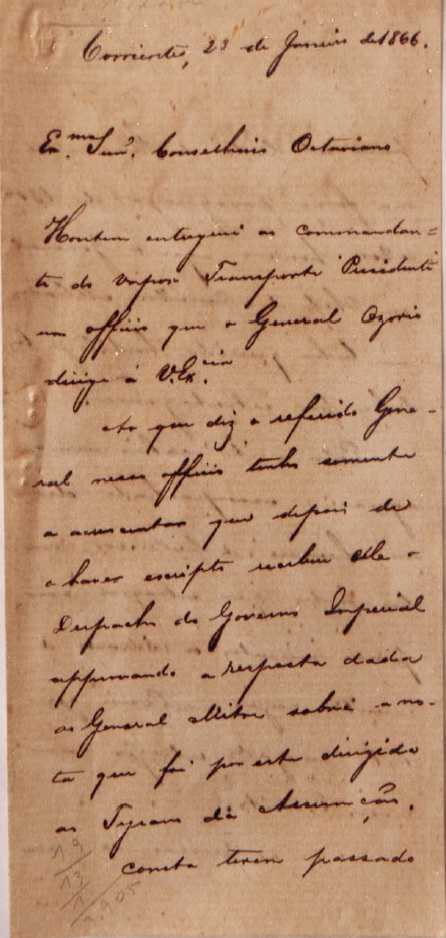 Corrientes, 23 de Janeiro de 1866.
Ex.mo Snr. Conselheiro Octaviano
Hontem entreguei ao commandan=
te do vapor Transporte Presidente
um officio que o General Ozorio
dirige á V.Ex.cia
Ao que diz o referido Gene-
ral nesse officio tenho somente
a accrescentar que depois de
o haver escripto recebeu elle o
Despacho do Governo Imperial
approvando a resposta dada
ao General Mitre sobre a no-
ta que foi por este dirigida
ao Tyrano da Assumpção.
Consta terem passado
19
13
1
3.905